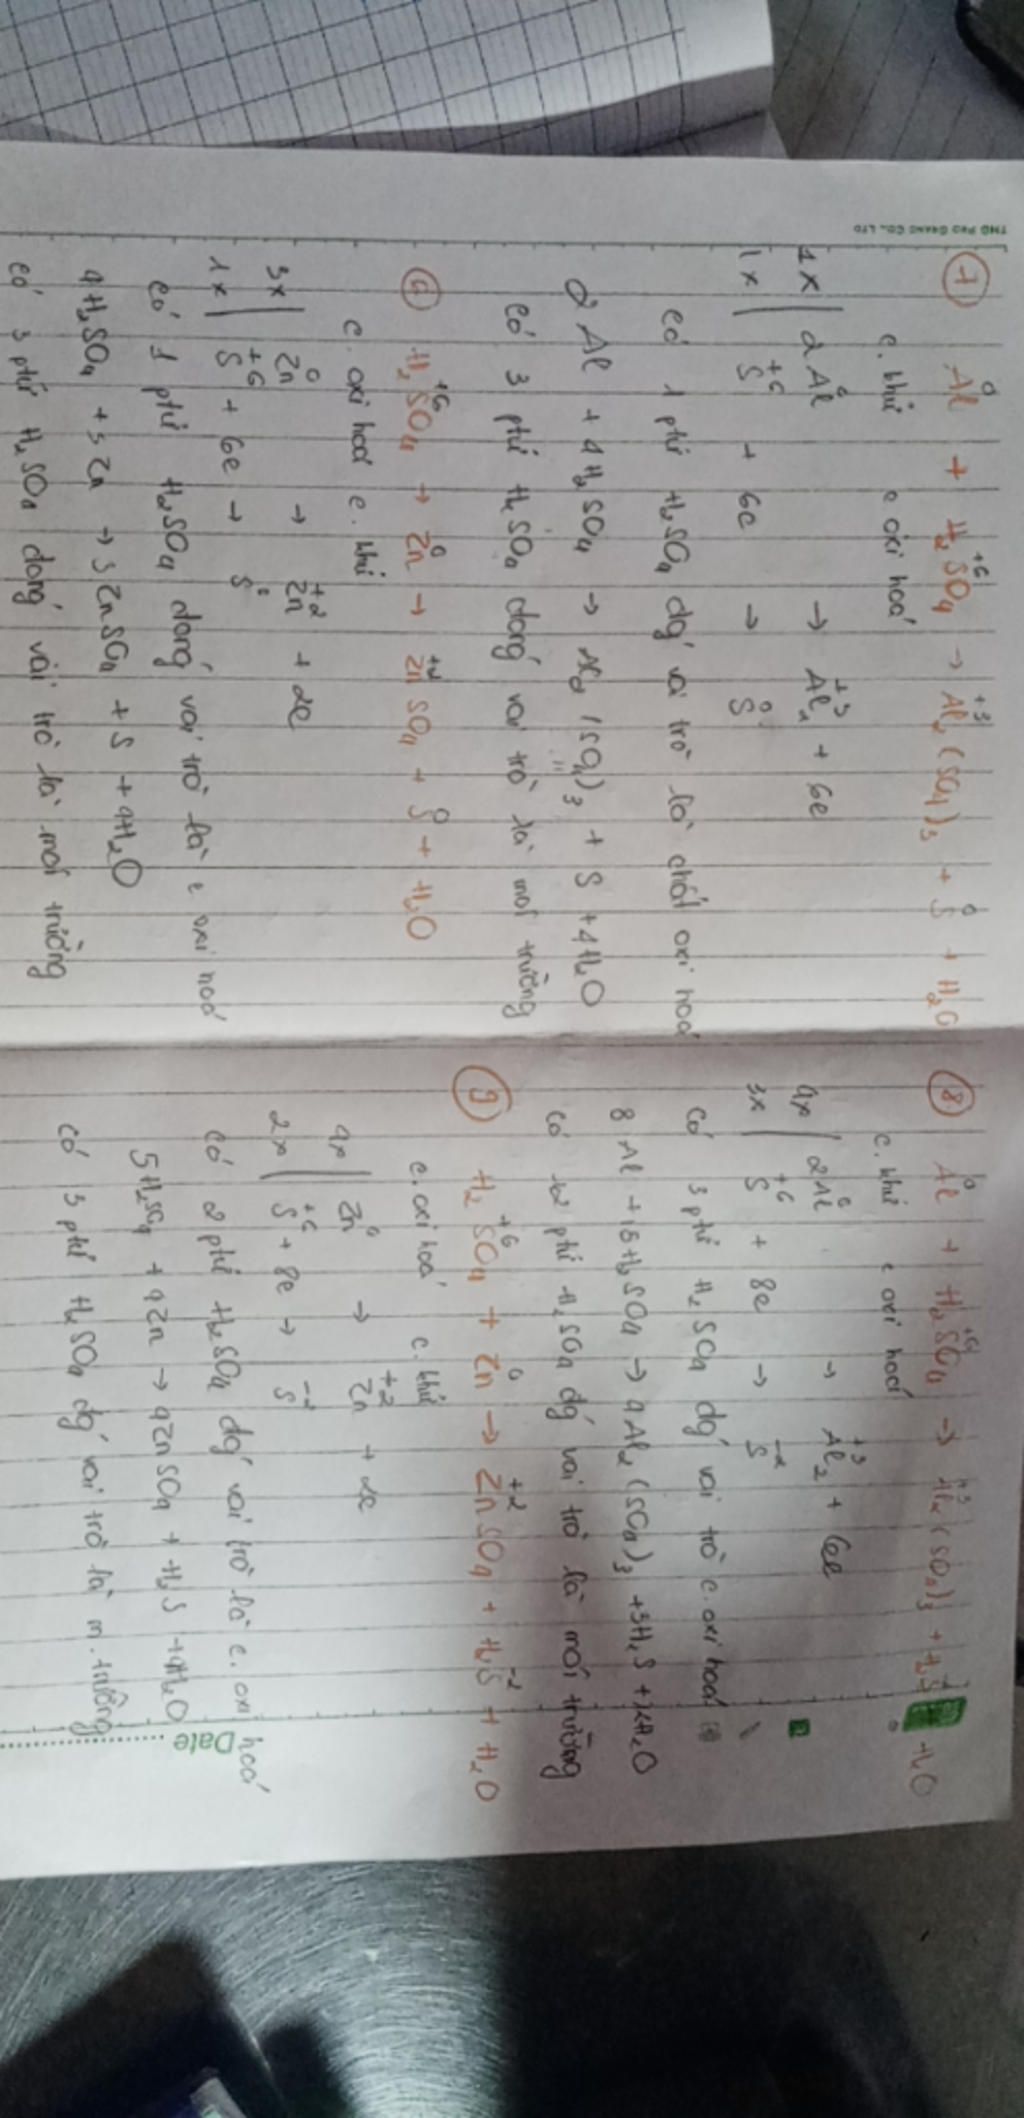 THG PHO GRAND CO., LTD
⑦ Al⁰ + H₂S⁺⁶O₄ → Al₂⁺³(SO₄)₃ + S⁰ + H₂O
c. khử c oxi hoá
1x | 2Al⁰ → Al₂⁺³ + 6e
1x | S⁺⁶ + 6e → S⁰
có 1 ptử H₂SO₄ đg' vai trò là chất oxi hoá
2Al + 4H₂SO₄ → Al₂(SO₄)₃ + S + 4H₂O
Có 3 ptử H₂SO₄ đong' vai trò là môi trường
⑥ H₂S⁺⁶O₄ → Zn⁰ → Zn⁺²SO₄ + S⁰ + H₂O
c. oxi hoá c. khử
3x | Zn⁰ → Zn⁺² + 2e
1x | S⁺⁶ + 6e → S⁰
Có 1 ptử H₂SO₄ đong' vai trò là c oxi hoá
4H₂SO₄ + 3Zn → 3ZnSO₄ + S + 4H₂O
Có 3 ptử H₂SO₄ đong' vai trò là môi trường
⑧ Al⁰ + H₂S⁺⁶O₄ → Al₂⁺³(SO₄)₃ + H₂S⁻² + H₂O
c. khử c oxi hoá
4x | 2Al⁰ → Al₂⁺³ + 6e
3x | S⁺⁶ + 8e → S⁻²
Có 3 ptử H₂SO₄ đg' vai trò c. oxi hoá
8Al + 15H₂SO₄ → 4Al₂(SO₄)₃ + 3H₂S + 12H₂O
Có 12 ptử H₂SO₄ đg' vai trò là môi trường
⑨ H₂S⁺⁶O₄ + Zn⁰ → Zn⁺²SO₄ + H₂S⁻² + H₂O
c. oxi hoá c. khử
4x | Zn⁰ → Zn⁺² + 2e
2x | S⁺⁶ + 8e → S⁻²
Có 2 ptử H₂SO₄ đg' vai trò là c. oxi hoá
5H₂SO₄ + 4Zn → 4ZnSO₄ + H₂S + 4H₂O
Có 3 ptử H₂SO₄ đg' vai trò là m. trường
Date